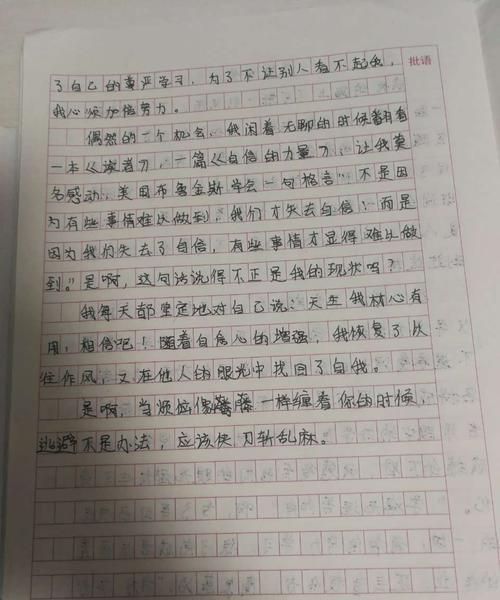 批语
了自己的尊严学习，为了不让别人看不起我，
我必须加倍努力。
偶然的一个机会，我闲着无聊的时候看着看
一本《读者》，一篇《自信的力量》，让我莫
名感动，美国布鲁金斯学会一句格言"，不是因
为有些事情难以做到，我们才失去自信！而是
因为我们失去了自信，有些事情才显得难以做
到。"是啊，这句话说得不正是我的现状吗？
我每天都坚定地对自己说：天生我材必有
用，相信吧！随着自信心的增强，我恢复了以
往作风，又在他人的眼光中找回了自我。
是啊，当烦恼像 藤一样缠着你的时候，
逃避不是办法，应该快刀斩乱麻。